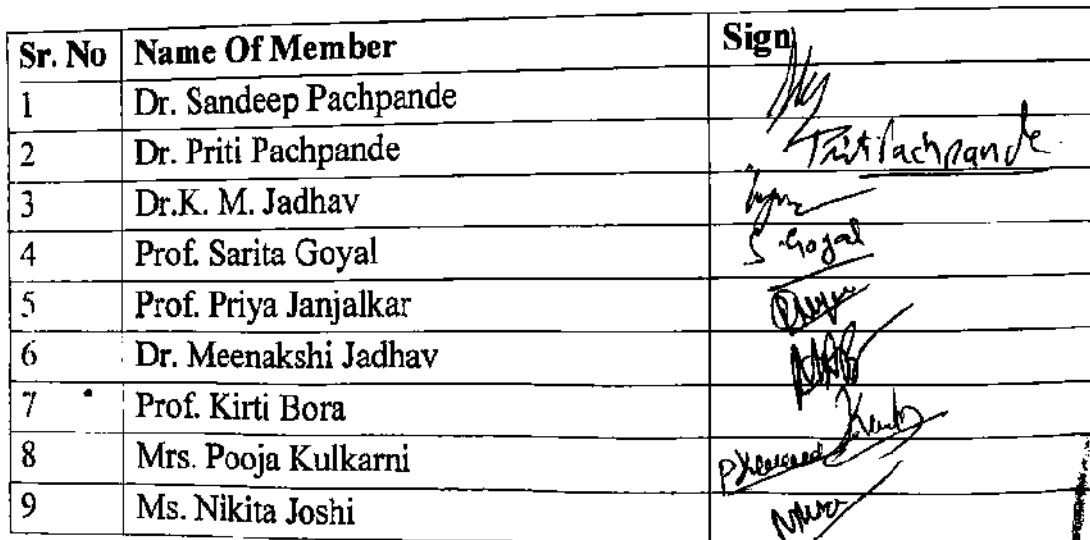 Sr. No Name Of Member Sign
1 Dr. Sandeep Pachpande
2 Dr. Priti Pachpande Priti Pachpande
3 Dr.K. M. Jadhav
4 Prof. Sarita Goyal S Goyal
5 Prof. Priya Janjalkar
6 Dr. Meenakshi Jadhav
7 Prof. Kirti Bora
8 Mrs. Pooja Kulkarni
9 Ms. Nikita Joshi